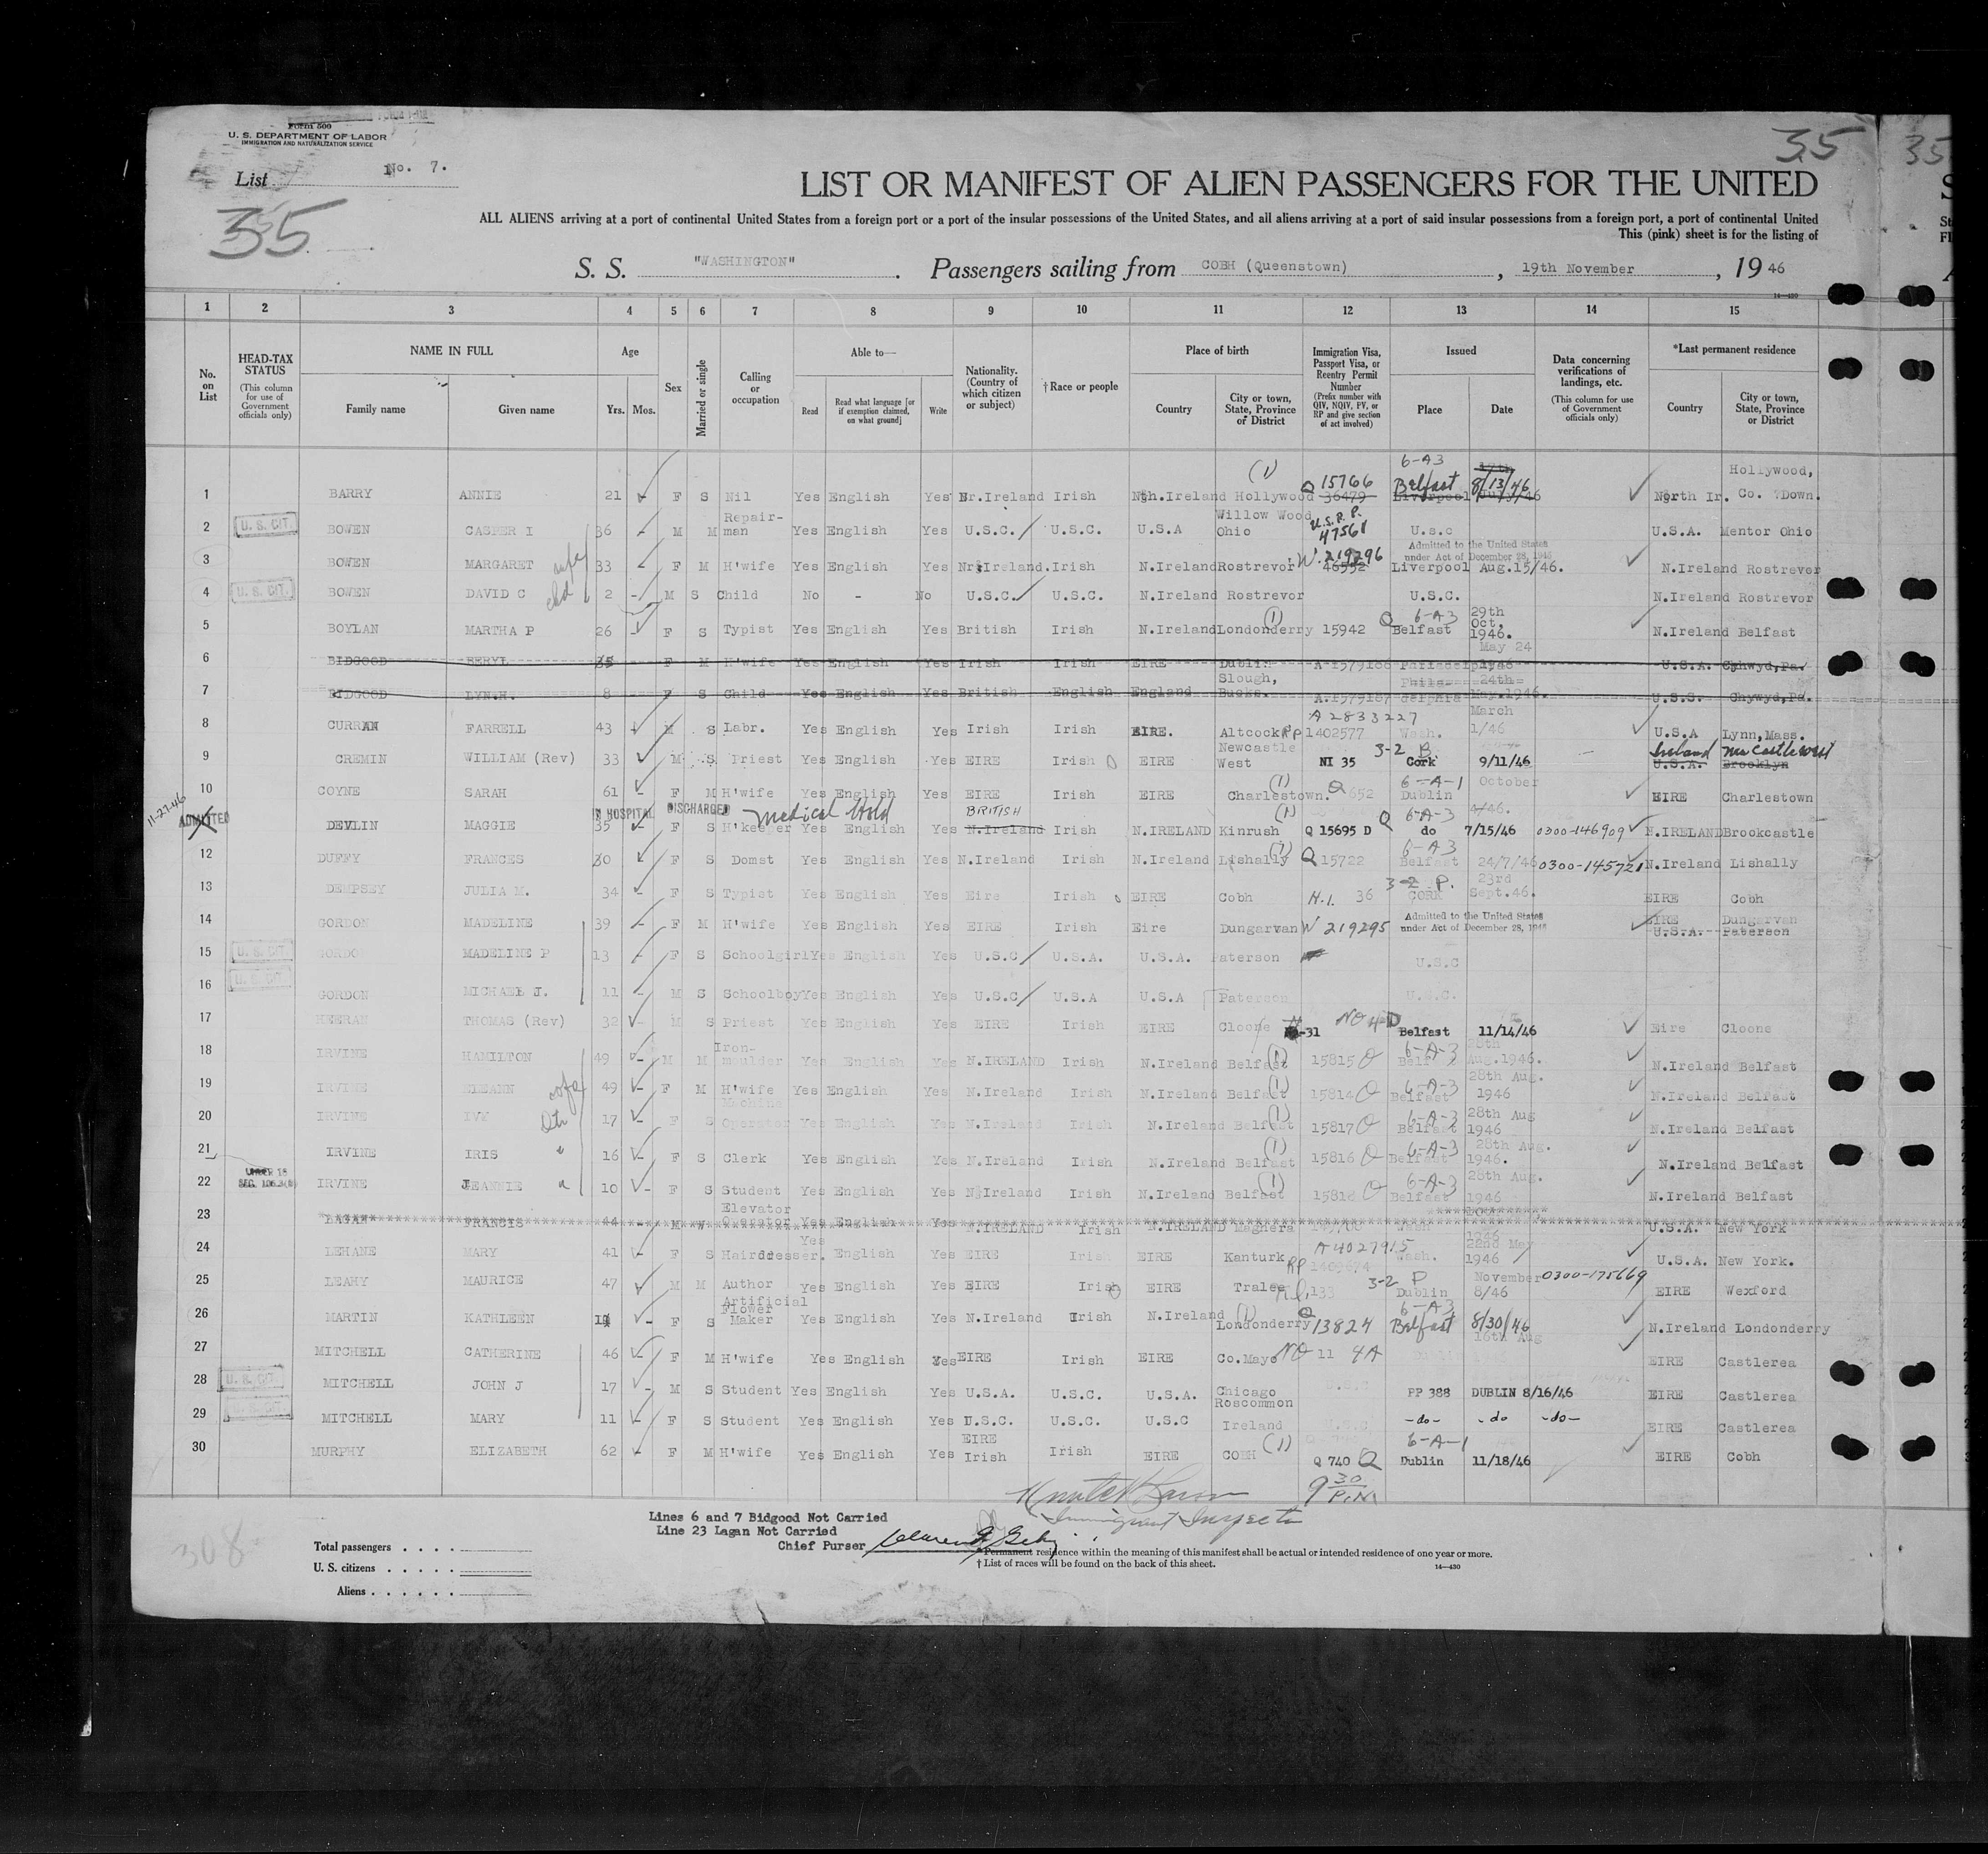 Form 500
U. S. DEPARTMENT OF LABOR
IMMIGRATION AND NATURALIZATION SERVICE
List No. 7.
35
35
35
LIST OR MANIFEST OF ALIEN PASSENGERS FOR THE UNITED
ALL ALIENS arriving at a port of continental United States from a foreign port or a port of the insular possessions of the United States, and all aliens arriving at a port of said insular possessions from a foreign port, a port of continental United
This (pink) sheet is for the listing of
S. S. "WASHINGTON". Passengers sailing from COBH (Queenstown), 19th November, 19 46
14—430
1 2 3 4 5 6 7 8 9 10 11 12 13 14 15
No. on List
HEAD-TAX STATUS (This column for use of Government officials only)
NAME IN FULL
Family name Given name
Age
Yrs. Mos.
Sex
Married or single
Calling or occupation
Able to—
Read Read what language [or if exemption claimed, on what ground] Write
Nationality. (Country of which citizen or subject)
† Race or people
Place of birth
Country City or town, State, Province or District
Immigration Visa, Passport Visa, or Reentry Permit Number (Prefix number with QIV, NQIV, PV, or RP and give section of act involved)
Issued
Place Date
Data concerning verifications of landings, etc. (This column for use of Government officials only)
*Last permanent residence
Country City or town, State, Province or District
1 BARRY ANNIE 21 F S Nil Yes English Yes Nr.Ireland Irish Nth.Ireland Hollywood (1) Q 15766 36479 6-A3 Belfast Liverpool 8/13/46 North Ir. Hollywood, Co. Down.
2 U. S. CIT. BOWEN CASPER I 36 - M M Repair-man Yes English Yes U.S.C. U.S.C. U.S.A Willow Wood Ohio U.S.P.P. 47561 U.s.c U.S.A. Mentor Ohio
3 BOWEN MARGARET wife 33 - F M H'wife Yes English Yes Nr.Ireland. Irish N.Ireland Rostrevor W. 219296 46552 Admitted to the United States under Act of December 28, 1945 Liverpool Aug.15/46. N.Ireland Rostrevor
4 U. S. CIT. BOWEN DAVID C chd 2 - M S Child No - No U.S.C. U.S.C. N.Ireland Rostrevor U.S.C. N.Ireland Rostrevor
5 BOYLAN MARTHA P 26 F S Typist Yes English Yes British Irish N.Ireland Londonderry (1) 15942 Q 6-A3 Belfast 29th Oct, 1946. N.Ireland Belfast
6 BIDGOOD BERYL 35 F M H'wife Yes English Yes Irish Irish EIRE Dublin May 24 U.S.A.
7 BIDGOOD LYN.H. 8 F S Child Yes English Yes British English England Slough, Bucks. A.1579187 24th May.1946. U.S.S. Chywyd,Pa.
8 CURRAN FARRELL 43 M S Labr. Yes English Yes Irish Irish EIRE. Altcock A 2833227 RP 1402577 Wash. March 1/46 U.S.A Lynn, Mass.
9 CREMIN WILLIAM (Rev) 33 M S Priest Yes English Yes EIRE Irish EIRE Newcastle West NI 35 3-2 Cork 9/11/46 Ireland U.S.A. Brooklyn
10 COYNE SARAH 61 - F M H'wife Yes English Yes EIRE Irish EIRE Charlestown. (1) Q 652 6-A-1 Dublin October 4/46. EIRE Charlestown
11-27-46 ADMITTED DEVLIN MAGGIE IN HOSPITAL DISCHARGED Medical Hold 35 - F S H'keeper Yes English Yes BRITISH N.Ireland Irish N.IRELAND Kinrush (1) Q 15695 D Q 6-A-3 do 7/15/46 0300-146909 N.IRELAND Brookcastle
12 DUFFY FRANCES 30 F S Domst Yes English Yes N.Ireland Irish N.Ireland Lishally (1) Q 15722 6-A3 Belfast 24/7/46 0300-145721 N.Ireland Lishally
13 DEMPSEY JULIA M. 34 - F S Typist Yes English Yes Eire Irish EIRE Cobh 36 3-2 P. CORK 23rd Sept.46. EIRE Cobh
14 GORDON MADELINE 39 - F M H'wife Yes English Yes EIRE Irish Eire Dungarvan W 219295 Admitted to the United States under Act of December 28, 1945 EIRE Dungarvan U.S.A. Paterson
15 U. S. CIT. GORDON MADELINE P 13 F S Schoolgirl Yes English Yes U.S.C U.S.A. U.S.A. Paterson U.S.C
16 U. S. CIT. GORDON MICHAEL J. 11 - M S Schoolboy Yes English Yes U.S.C U.S.A U.S.A Paterson U.S.C.
17 HEERAN THOMAS (Rev) 32 - M S Priest Yes English Yes EIRE Irish EIRE Cloone -31 NO 4-D Belfast 11/14/46 Eire Cloone
18 IRVINE HAMILTON 49 - M M Iron-moulder Yes English Yes N.IRELAND Irish N.Ireland Belfast (1) 15815 Q 6-A-3 28th Aug.1946. N.Ireland Belfast
19 IRVINE wife 49 - F M H'wife Yes English Yes N.Ireland Irish N.Ireland Belfast (1) 15814 Q 6-A-3 Belfast 28th Aug. 1946 N.Ireland Belfast
20 IRVINE IVY Dtr 17 - F S Machine Operator Yes English Yes N.Ireland Irish N.Ireland Belfast (1) 15817 Q 6-A-3 Belfast 28th Aug 1946 N.Ireland Belfast
21 IRVINE IRIS " 16 - F S Clerk Yes English Yes N.Ireland Irish N.Ireland Belfast (1) 15816 Q 6-A-3 Belfast 28th Aug. 1946. N.Ireland Belfast
22 UNDER 16 IRVINE JEANNIE " 10 - F S Student Yes English Yes N.Ireland Irish N.Ireland Belfast (1) 15818 Q 6-A-3 Belfast 28th Aug. 1946 N.Ireland Belfast
23 FRANCIS 44 M Elevator Operator Yes English Yes N.IRELAND Irish N.IRELAND Maghera U.S.A. New York
24 LEHANE MARY 41 - F S Hairddesser. Yes English Yes EIRE Irish EIRE Kanturk A 4027915 RP Wash. 22nd May 1946 U.S.A. New York.
25 LEAHY MAURICE 47 M M Author Yes English Yes EIRE Irish EIRE Tralee 133 3-2 P Dublin November 8/46 0300-175669 EIRE Wexford
26 MARTIN KATHLEEN - F S Artificial Flower Maker Yes English Yes N.Ireland Irish N.Ireland Londonderry (1) Q 13824 6-A3 Belfast 8/30/46 N.Ireland Londonderry
27 MITCHELL CATHERINE 46 F M H'wife Yes English Yes EIRE Irish EIRE Co.Mayo NO 11 4A 16th Aug EIRE Castlerea
28 U. S. CIT. MITCHELL JOHN J 17 - M S Student Yes English Yes U.S.A. U.S.C. U.S.A. Chicago PP 388 DUBLIN 8/16/46 EIRE Castlerea
29 U. S. CIT. MITCHELL MARY 11 - F S Student Yes English Yes U.S.C. U.S.C. U.S.C Roscommon Ireland U.S.C -do- -do -do- EIRE Castlerea
30 MURPHY ELIZABETH 62 - F M H'wife Yes English Yes EIRE Irish Irish EIRE COBH (1) Q 740 Q 6-A-1 Dublin 11/18/46 EIRE Cobh
9 30 P.M.
Immigrant Inspector
Lines 6 and 7 Bidgood Not Carried
Line 23 Lagan Not Carried
Chief Purser
308
Total passengers . . . .
U. S. citizens . . . . .
Aliens . . . . . .
* Permanent residence within the meaning of this manifest shall be actual or intended residence of one year or more.
† List of races will be found on the back of this sheet.
14—430